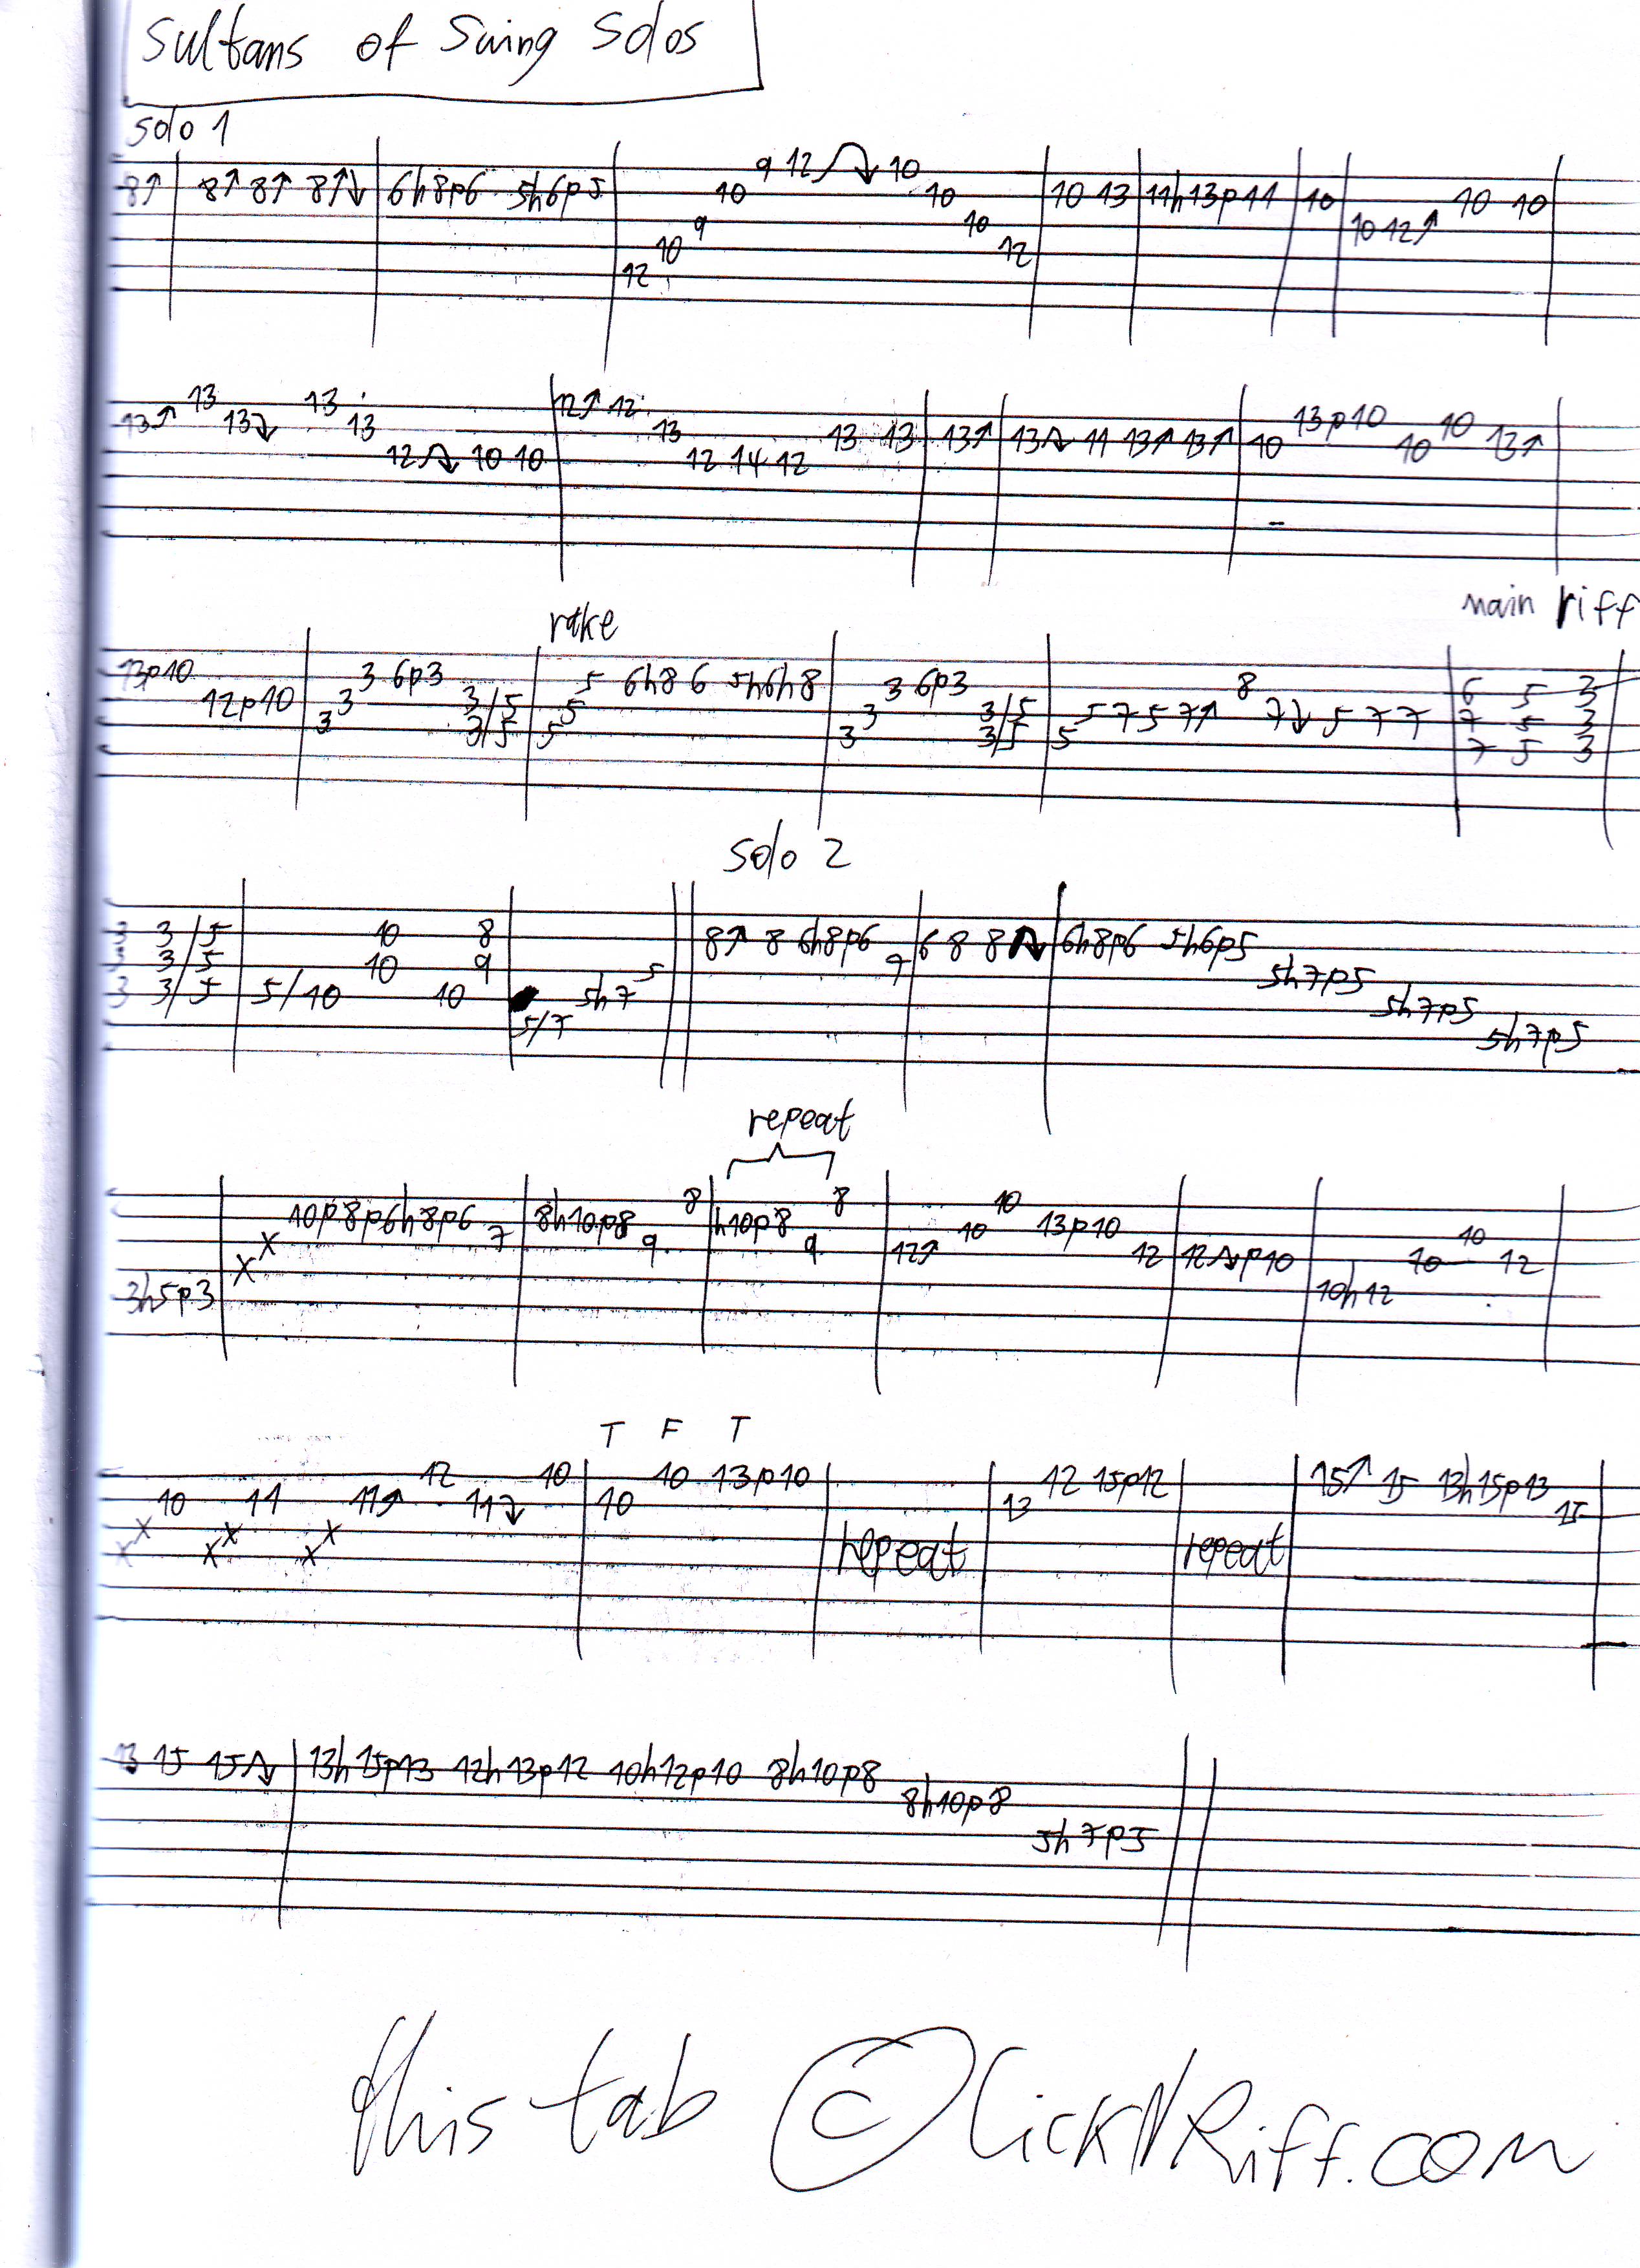 Sultans of Swing Solos
solo 1
8↑ 8↑ 8↑ 8↑↓ 6h8p6 5h6p5 12 10 9 10 9 12 ↷ 10 10 10 12 10 13 11h13p11 10 10 12↑ 10 10
13↑ 13 13↓ 13 13 12↷ 10 10 12↑ 12 13 12 14 12 13 13 13↑ 13↷ 11 13↑ 13↑ 10 13p10 10 10 13↑
rake
main riff
13p10 12p10 3 3 3 6p3 3/5 5 5 5 6h8 6 5h6h8 3 3 3 6p3 3/5 5 5 7 5 7↑ 8 7↓ 5 7 7 6 5 3
3/5 3/5 7 5 3
7 5 3
solo 2
3 3/5 10 8 8↑ 8 6h8p6 7 6 8 8↷ 6h8p6 5h6p5 5h7p5 5h7p5 5h7p5
3 3/5 10 9
3 3/5 5/10 10 5/7 5h7 5
repeat
3h5p3 x x 10p8p6h8p6 7 8h10p8 9 8 h10p8 9 8 12↑ 10 10 13p10 12 12↷p10 10h12 10 10 12
T F T
x x 10 x x 11 x x 11↑ 12 11↓ 10 10 10 13p10 repeat 13 12 15p12 repeat 15↑ 15 13h15p13 15
13 15 15↷ 13h15p13 12h13p12 10h12p10 8h10p8 8h10p8 5h7p5
this tab © LickNRiff.com